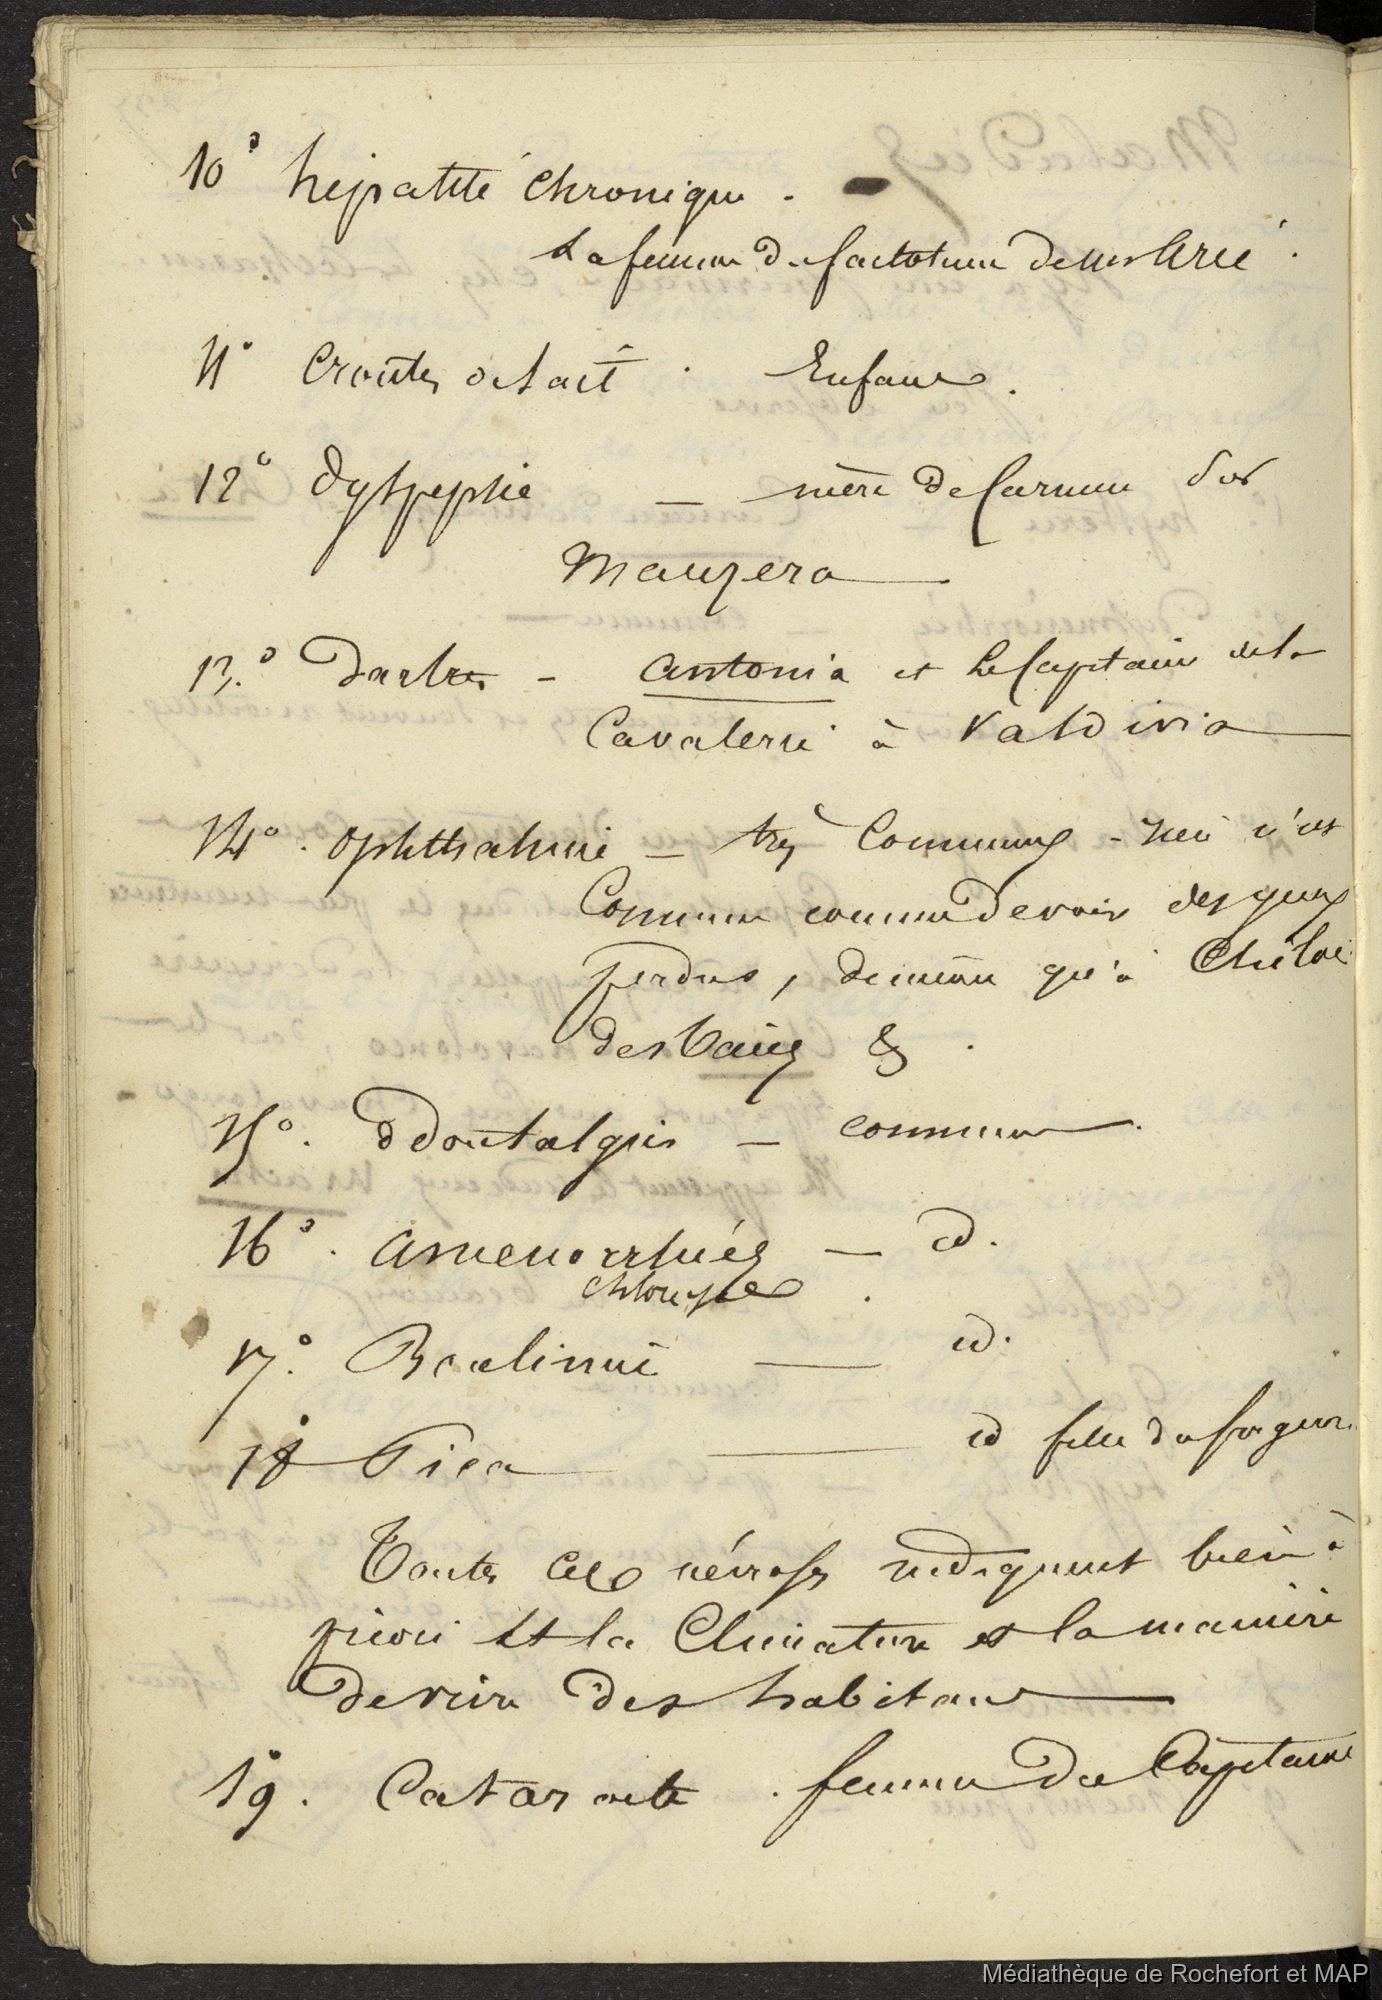 10° hépatite chronique.
La femme du factotum de
11° Croutes de lait. Enfans.
12° Dyspepsie — mère de Carmen d'or
Manzera
13.° Dartres - Antonia et Le Capitaine de la
Cavalerie à Valdivia
14°. Ophthalmie — très Communes - rien n'est
Commun comme de voir des yeux
perdus, de même qu'à Chiloe
des &.
15°. Odontalgies — commun.
16°. Amenorrhées — id.
Chloroses.
17.° Boulimie — id.
18° Pica — id fille du forgeron.
Toutes ces névroses indiquent bien à
priori et la Climature et la manière
de vivre des habitans
19°. Cataracte. femme du Capitaine
Médiathèque de Rochefort et MAP